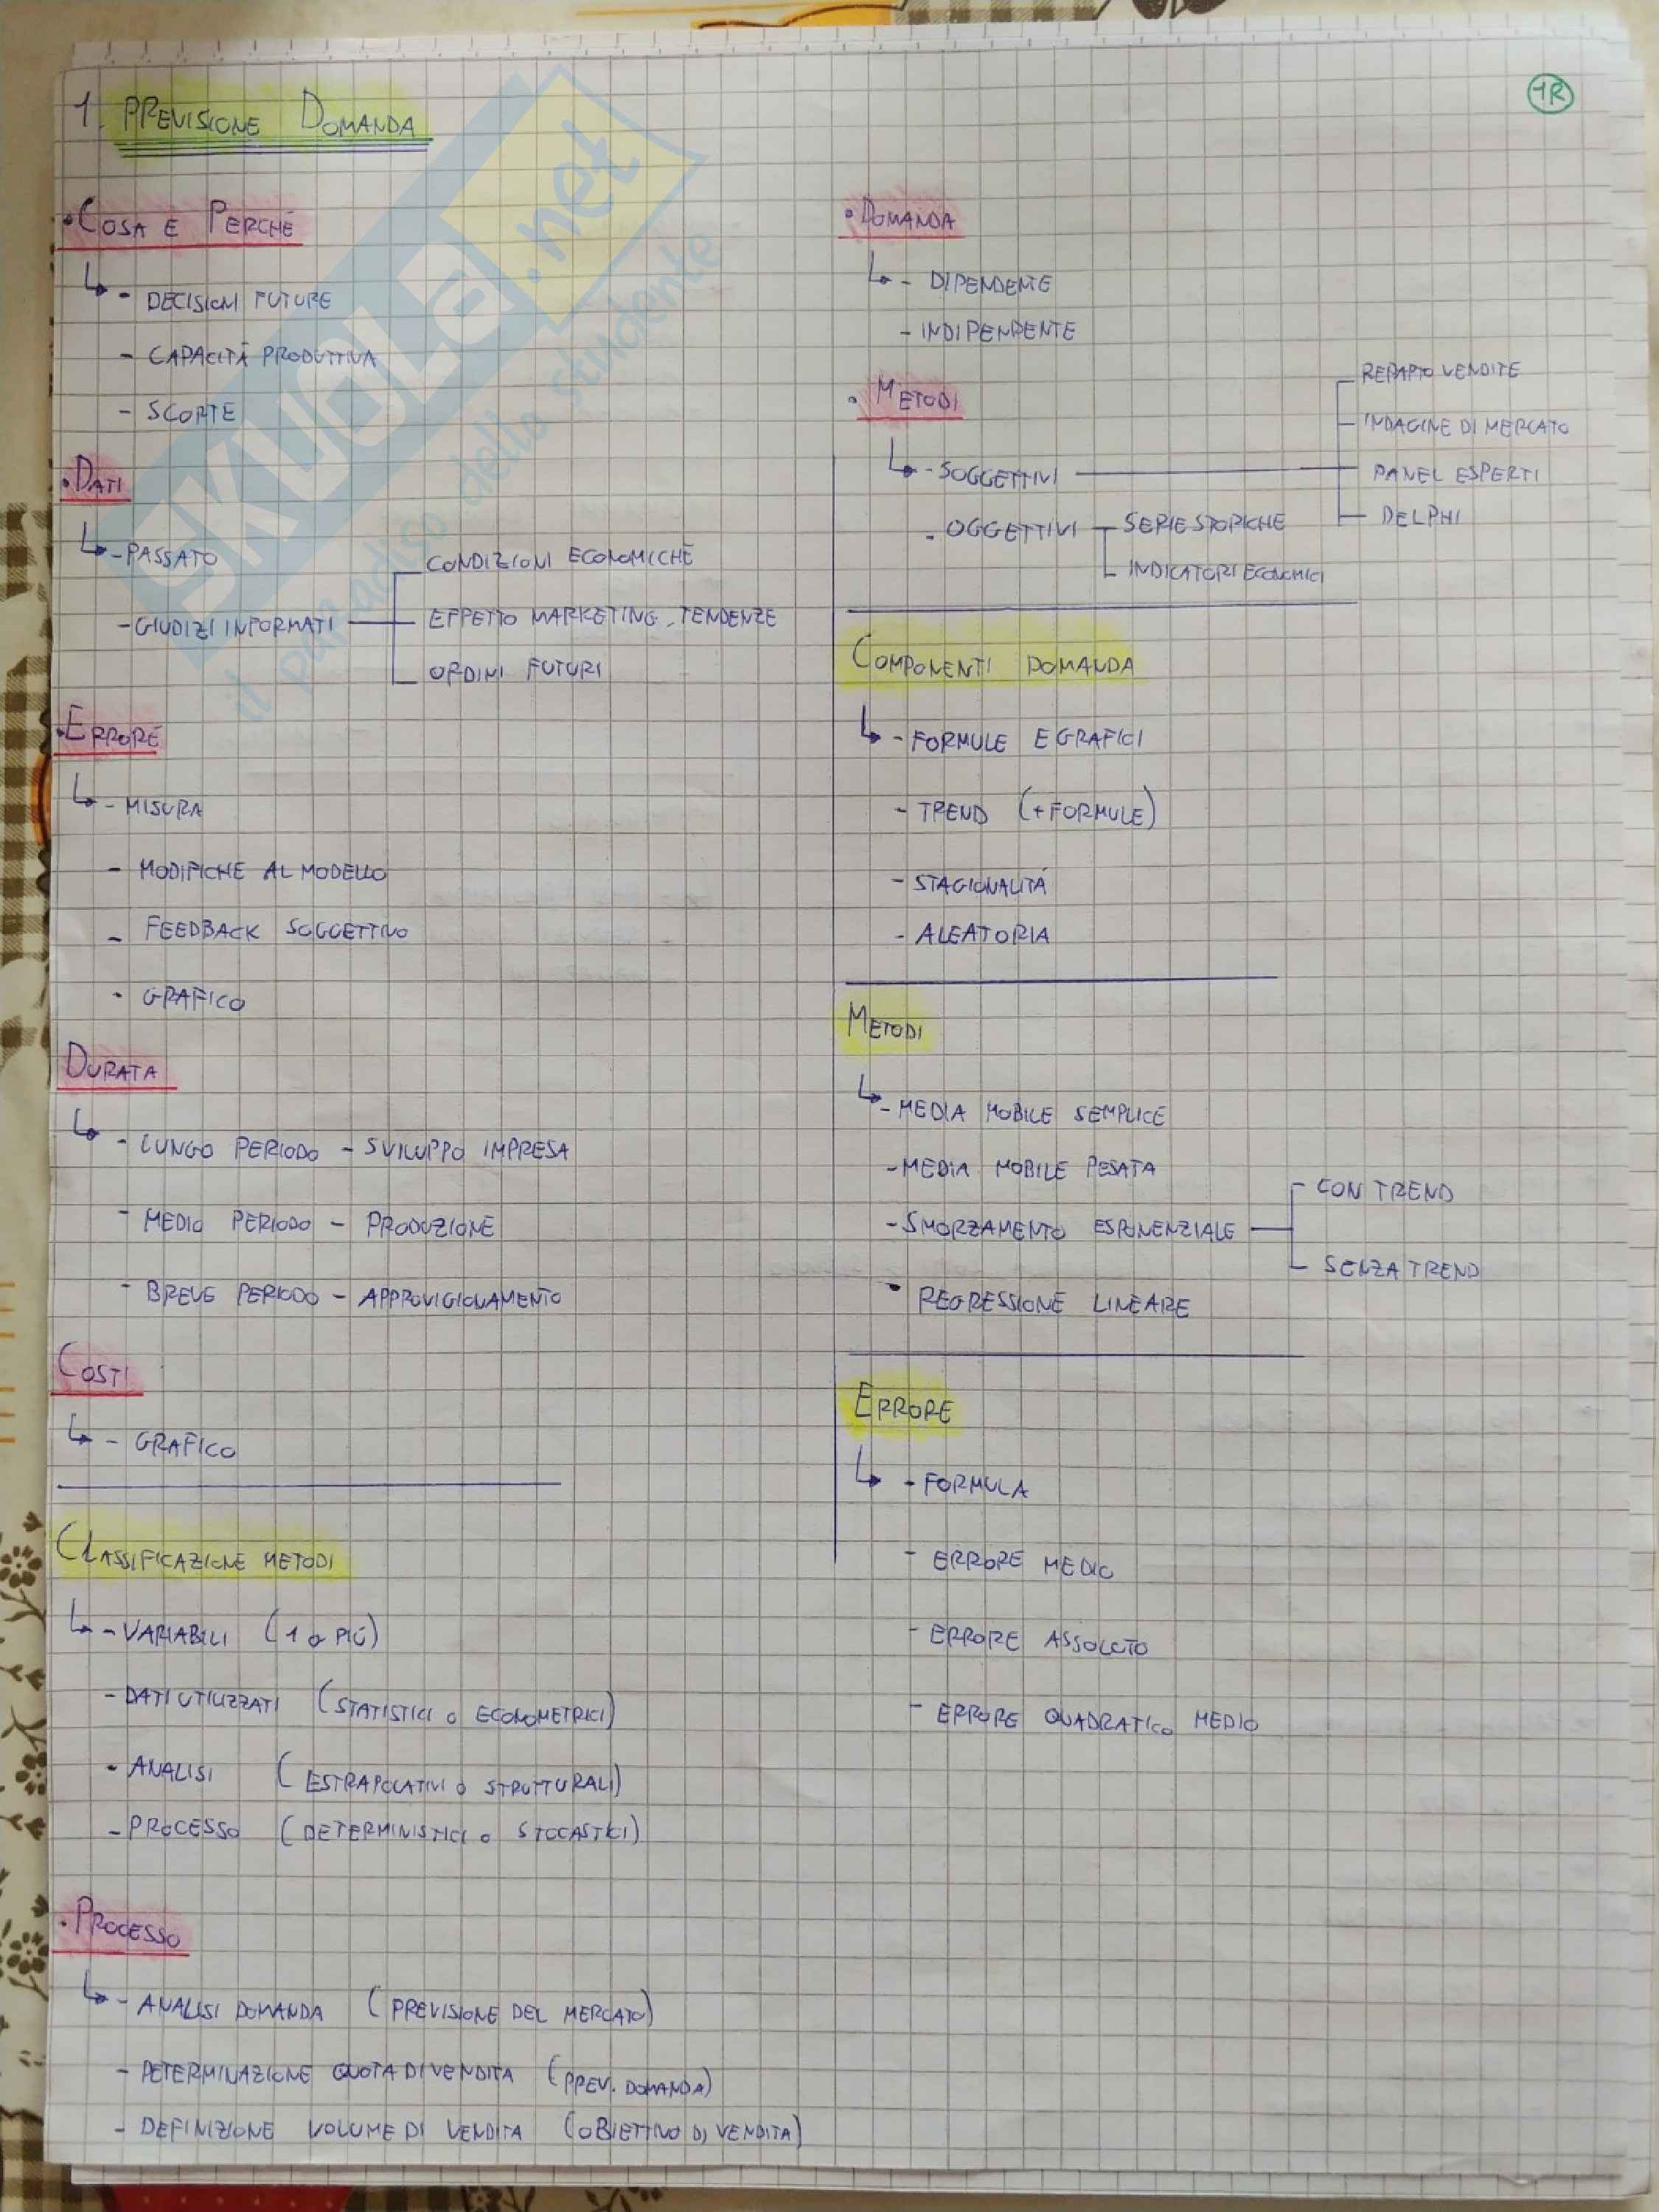 1R
1. PREVISIONE DOMANDA
• COSA E PERCHÉ
- DECISIONI FUTURE
- CAPACITÀ PRODUTTIVA
- SCORTE
• DATI
- PASSATO
- GIUDIZI INFORMATI
CONDIZIONI ECONOMICHE
EFFETTO MARKETING - TENDENZE
ORDINI FUTURI
• ERRORE
- MISURA
- MODIFICHE AL MODELLO
- FEEDBACK SOGGETTIVO
- GRAFICO
DURATA
- LUNGO PERIODO - SVILUPPO IMPRESA
- MEDIO PERIODO - PRODUZIONE
- BREVE PERIODO - APPROVIGIONAMENTO
COSTI
- GRAFICO
CLASSIFICAZIONE METODI
- VARIABILI (1 o PIÚ)
- DATI UTILIZZATI (STATISTICI o ECONOMETRICI)
- ANALISI (ESTRAPOLATIVI o STRUTTURALI)
- PROCESSO (DETERMINISTICI o STOCASTICI)
• PROCESSO
- ANALISI DOMANDA (PREVISIONE DEL MERCATO)
- DETERMINAZIONE QUOTA DI VENDITA (PREV. DOMANDA)
- DEFINIZIONE VOLUME DI VENDITA (OBIETTIVO DI VENDITA)
• DOMANDA
- DIPENDENTE
- INDIPENDENTE
• METODI
- SOGGETTIVI
REPARTO VENDITE
INDAGINE DI MERCATO
PANEL ESPERTI
DELPHI
- OGGETTIVI
SERIE STORICHE
INDICATORI ECONOMICI
COMPONENTI DOMANDA
- FORMULE E GRAFICI
- TREND (+FORMULE)
- STAGIONALITÁ
- ALEATORIA
METODI
- MEDIA MOBILE SEMPLICE
- MEDIA MOBILE PESATA
- SMORZAMENTO ESPONENZIALE
CON TREND
SENZA TREND
- REGRESSIONE LINEARE
ERRORE
- FORMULA
- ERRORE MEDIO
- ERRORE ASSOLUTO
- ERRORE QUADRATICO MEDIO
SKUOLA.net
il paradiso dello studente